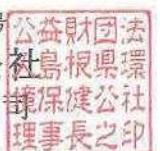 社
公益財団法
人島根県環
境保健公社
理事長之印